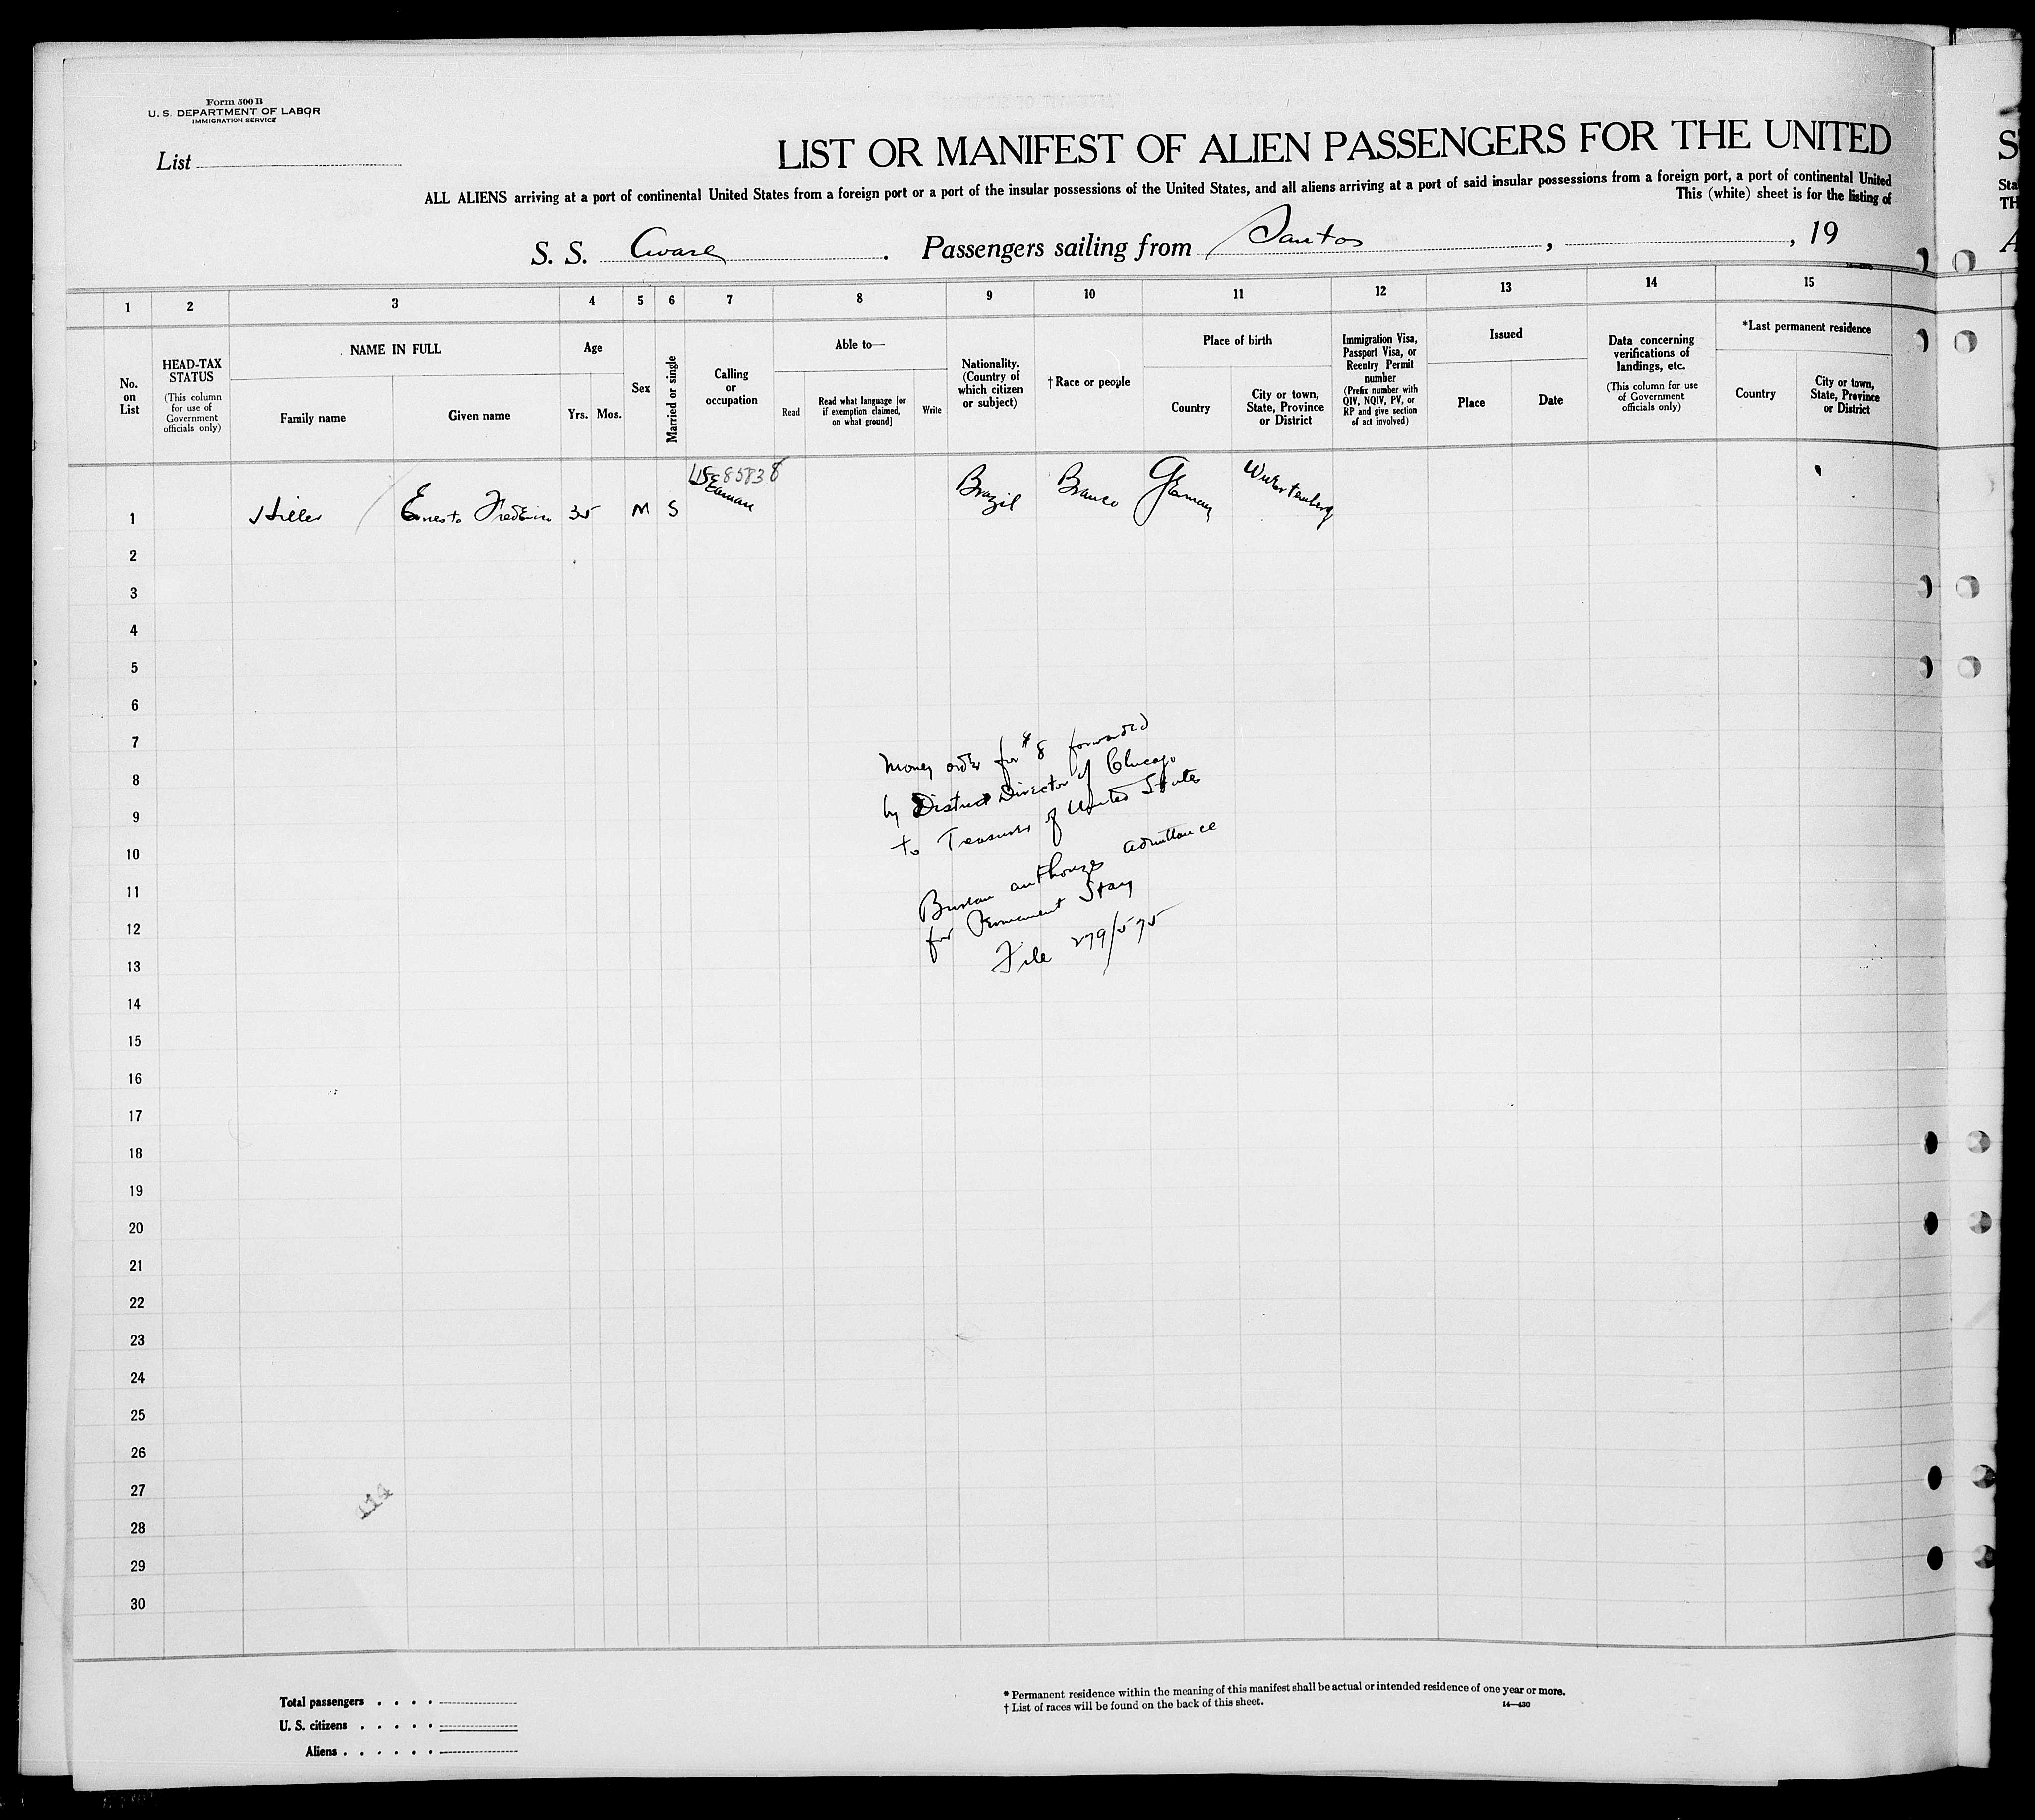 Form 500 B
U. S. DEPARTMENT OF LABOR
IMMIGRATION SERVICE
List
LIST OR MANIFEST OF ALIEN PASSENGERS FOR THE UNITED
ALL ALIENS arriving at a port of continental United States from a foreign port or a port of the insular possessions of the United States, and all aliens arriving at a port of said insular possessions from a foreign port, a port of continental United
This (white) sheet is for the listing of
S. S. Passengers sailing from Santos , , 19
1 2 3 4 5 6 7 8 9 10 11 12 13 14 15
No. on List
HEAD-TAX STATUS
(This column for use of Government officials only)
NAME IN FULL
Family name
Given name
Age
Yrs. Mos.
Sex
Married or single
Calling or occupation
Able to—
Read
Read what language [or if exemption claimed, on what ground]
Write
Nationality. (Country of which citizen or subject)
† Race or people
Place of birth
Country
City or town, State, Province or District
Immigration Visa, Passport Visa, or Reentry Permit number
(Prefix number with QIV, NQIV, PV, or RP and give section of act involved)
Issued
Place
Date
Data concerning verifications of landings, etc.
(This column for use of Government officials only)
*Last permanent residence
Country
City or town, State, Province or District
85838
1 Hiller Ernesto Frederico 35 M S Seaman Brazil Branco German Wurtenberg
2
3
4
5
6
7
8
9
10
11
12
13
14
15
16
17
18
19
20
21
22
23
24
25
26
27
28
29
30
Money order for $8 forwarded
by District Director of Chicago
to Treasurer of United States
Bureau authorizes admittance
for Permanent Stay
File 279/575
Total passengers . . . .
U. S. citizens . . . . .
Aliens . . . . . .
* Permanent residence within the meaning of this manifest shall be actual or intended residence of one year or more.
† List of races will be found on the back of this sheet.
14—430